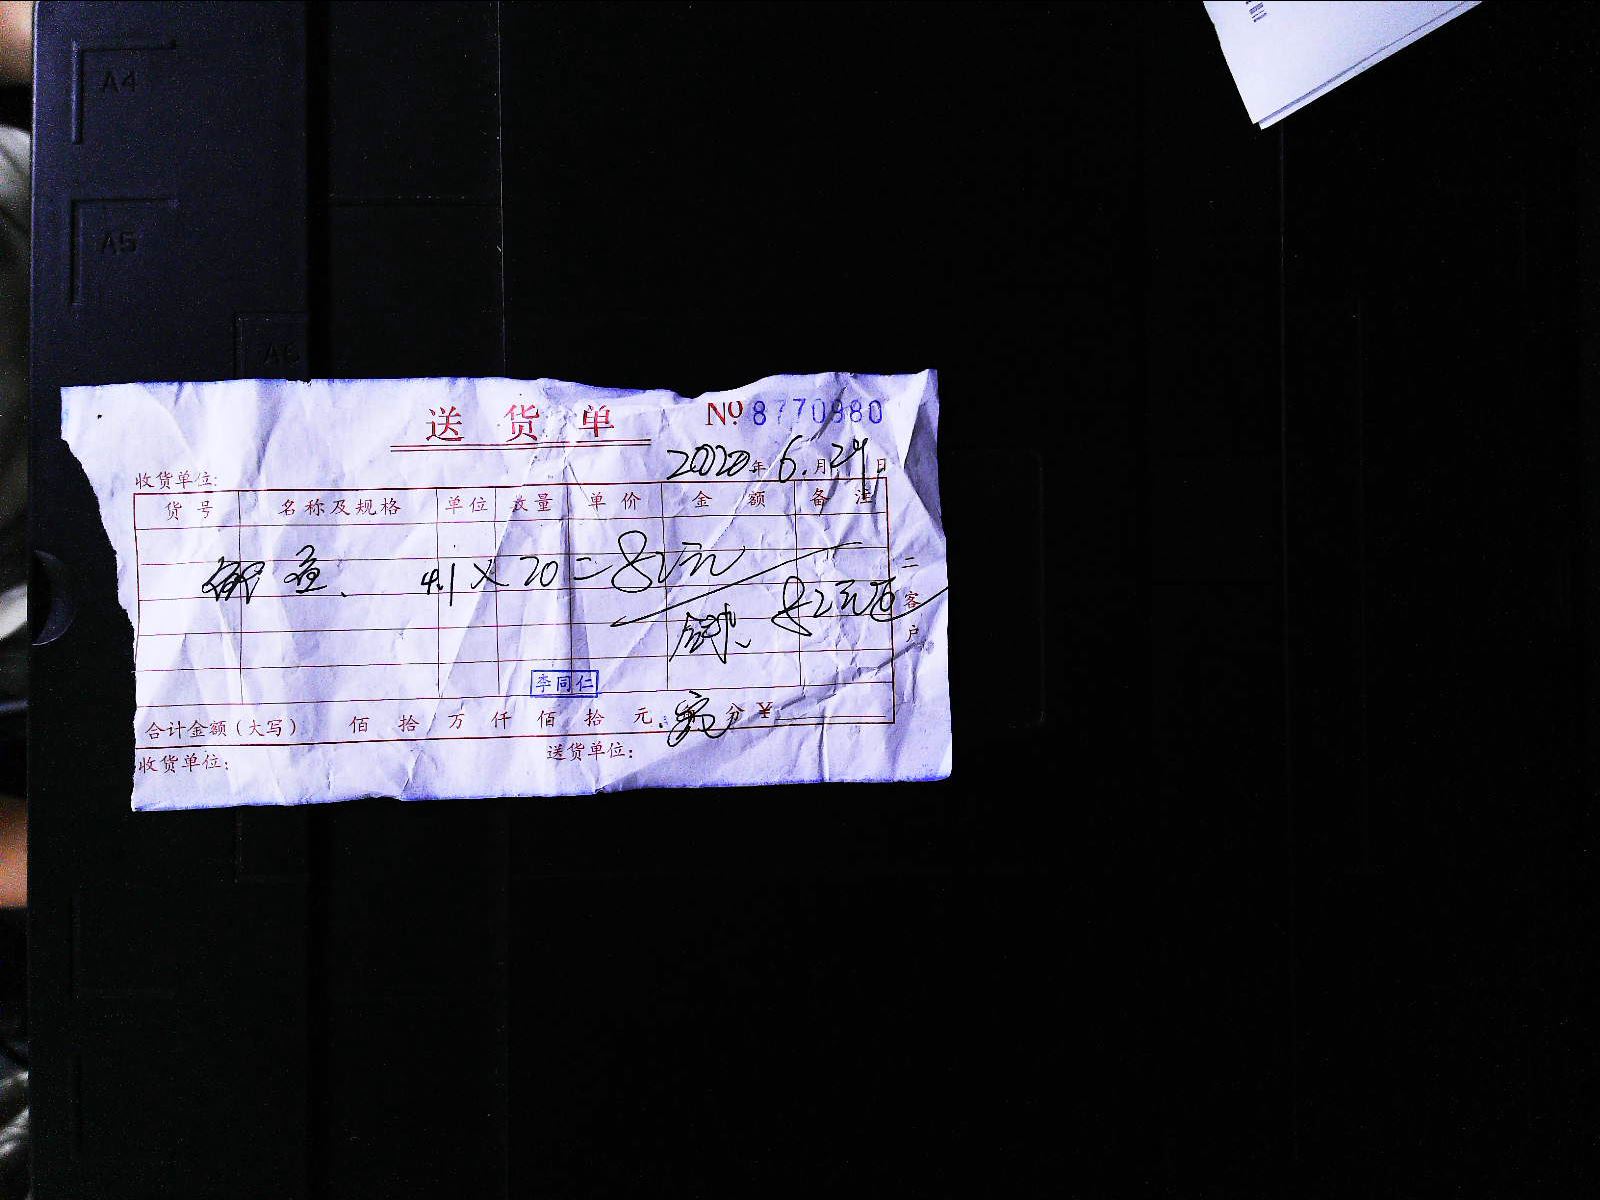 A4
A5
A6
送货单 № 8770980
2020年6.月24日
收货单位:
货号 名称及规格 单位 数量 单价 金额 备注
鱼. 4.1×20=82元
82元
二客户
李同仁
合计金额(大写) 佰 拾 万 仟 佰 拾 元 分¥
收货单位: 送货单位: